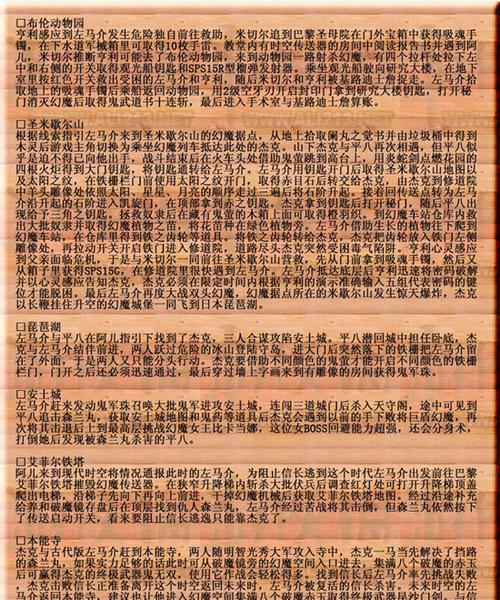 □布伦动物园
亨利感应到左马介发生危险独自前往救助，米切尔追到巴黎圣母院在门外宝箱中获得吸魂手
镯，在下水道军械箱里可取得10枚手雷。教堂内有时空传送器的房间中阅读报告书并遇到阿
儿，米切尔推断亨利可能去了布伦动物园，来到动物园一路射杀幻魔，有四个拉杆处拉下左
中和右侧的开关取得观光船钥匙和SPS15R型榴弹发射器。乘坐观光船驶向研究大楼，在地下
室里按红色开关救出受困的左马介和亨利，随后米切尔和亨利被基路迪士詹捉走。左马介拾
取地上的吸魂手镯后乘船返回动物园，用2级空牙刃开启封印门拿到研究大楼钥匙，打开秘
门消灭幻魔后取得鬼武道书十连斩，最后进入手术室与基路迪士詹算账。
□圣米歇尔山
根据线索指引左马介来到圣米歇尔山的幻魔据点，从地上拾取阑丸之觉书并由垃圾桶中得到
木灵后游戏主角切换为乘坐幻魔列车抵达此处的杰克。山下杰克与平八再次相遇，但平八似
乎是迫不得已向他出手，战斗结束后在火车头处借助鬼萤跳到高台上，用炎蛇剑点燃花园的
四根火炬得到大门钥匙，将钥匙通转给左马介。左马介用钥匙开门后取得圣米歇尔山地图以
及太阳之纹，在铁栅栏门前使用太阳之纹开门，取得赤目石后转交给杰克，由杰克到修道院
中羊头雕像处依照太阳、星星、月亮的顺序走近三遍后将石阶升起。接着回传送点转为左马介
沿升起的石阶进入凯旋门，在顶部拿到赤之钥匙。杰克拿到钥匙后打开秘门，随后平八出
现给予三角之钥匙。拯救奴隶后在藏有鬼萤的木箱上面可取得橙羽织。到幻魔车站仓库内救
出大批奴隶并取得幻魔植物之苗，将花苗种在绿色植物旁。左马介借助生长的植物往下爬到
幻魔车站，在仓库里得到铁之齿轮等道具。将铁之齿轮转给杰克，杰克把齿轮放入铁门左侧
雕像处，再拉动开关开启铁门进入修道院，道路尽头杰克突然受困毒气陷阱。亨利心灵感应
到父亲面临危机，于是与米切尔一同前往圣米歇尔山营救，先从门前拿到吸魂手镯，然后又
从箱子里获得SPS15G，在修道院里很快遇到左马介。左马介抵达底层后亨利迅速将密码破解
并以心灵感应告知杰克，杰克必须在限定时间内根据亨利的演示准确输入五组代表密码的键
位才能脱困。最后左马介再度大战双头幻魔，幻魔据点所在的米歇尔山发生惊天爆炸，杰克
以长鞭挂住升空的幻魔城堡一同飞到日本琵琶湖。
□琵琶湖
左马介与平八在阿儿指引下找到了杰克，三人合谋攻陷安土城。平八潜回城中担任卧底，杰
克与左马介结伴前进，两人跃过危险的冰山登陆守岛，进大门后突然落下的铁栅把左马介留
在了外面，于是两人又只能分头行动。杰克要借助不同颜色的鬼萤才能开启不同颜色的铁栅
栏门，门开之后还必须迅速通过，最后穿过墙上字画来到有雕像的房间获得鬼军珠。
□安土城
左马介赶来发动鬼军珠召唤大批鬼军进攻安土城，连闯三道城门后杀入天守阁，途中可见到
平八追击森兰丸，获取安土城地图和鬼药等道具后杰克会遇到以前的手下败将巨盾幻魔，再
次将其击退后上到最高层挑战幻魔女王比卡当娜，这位女BOSS回避能力超强，还会分身术，
打倒她后发现被森兰丸杀害的平八。
□艾菲尔铁塔
阿儿来到现代时空将情况通报此时的左马介，为阻止信长逃到这个时代左马介出发前往巴黎
艾菲尔铁塔摧毁幻魔传送器。在狭窄升降梯内斩杀大批伏兵后调查红灯处可打开升降梯顶盖
爬出电梯，沿梯子先向下再向上前进，干掉幻魔机械后获取艾菲尔铁塔地图。经过沿途补充
给养和破魔镜存盘后在顶层找到仇人森兰丸，左马介经过苦战将其击倒，但森兰丸依然按下
了传送启动开关，看来要阻止信长逃逸只能靠杰克了。
□本能寺
杰克与古代版左马介赶到本能寺，两人随明智光秀大军攻入寺中，杰克一马当先解决了挡路
的森兰丸，如果实力足够的话此时可从破魔镜旁的幻魔空间入口进去，集满八个破魔的赤玉
后可赢得杰克的终极武器鬼无双，使用它作战会轻松得多。找到信长后左马介率先挑战失败